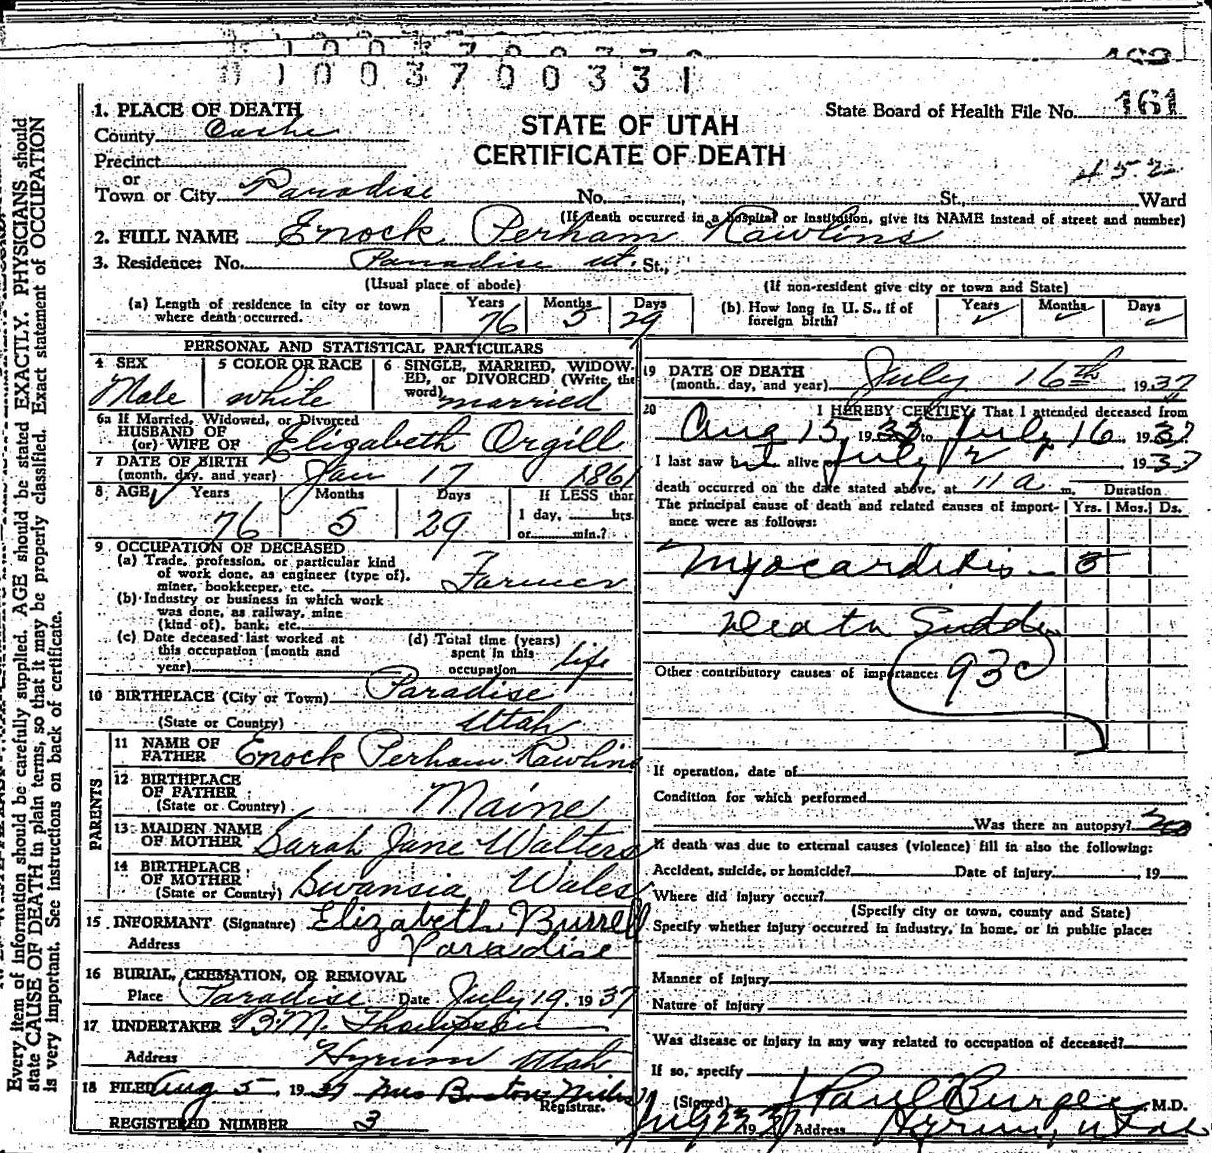 01003700331
State Board of Health File No. 161
STATE OF UTAH
CERTIFICATE OF DEATH
1. PLACE OF DEATH
County Cache
Precinct
or
Town or City Paradise No. St., Ward
452
(If death occurred in a hospital or institution, give its NAME instead of street and number)
2. FULL NAME Enock Perham Rawlins
3. Residence: No. Paradise Ut. St.,
(Usual place of abode) (If non-resident give city or town and State)
(a) Length of residence in city or town where death occurred. Years 76 Months 5 Days 29
(b) How long in U. S., if of foreign birth? Years Months Days
PERSONAL AND STATISTICAL PARTICULARS
4 SEX Male
5 COLOR OR RACE white
6 SINGLE, MARRIED, WIDOWED, or DIVORCED (Write the word) married
6a If Married, Widowed, or Divorced
HUSBAND OF
(or) WIFE OF Elizabeth Orgill
7 DATE OF BIRTH
(month, day, and year) Jan 17 1861
8 AGE Years 76 Months 5 Days 29 If LESS than 1 day, hrs. or min.?
9 OCCUPATION OF DECEASED
(a) Trade, profession, or particular kind of work done, as engineer (type of), miner, bookkeeper, etc. Farmer
(b) Industry or business in which work was done, as railway, mine (kind of), bank, etc.
(c) Date deceased last worked at this occupation (month and year)
(d) Total time (years) spent in this occupation life
10 BIRTHPLACE (City or Town) Paradise
(State or Country) Utah
PARENTS
11 NAME OF FATHER Enock Perham Rawlins
12 BIRTHPLACE OF FATHER
(State or Country) Maine
13 MAIDEN NAME OF MOTHER Sarah Jane Walters
14 BIRTHPLACE OF MOTHER
(State or Country) Swansia Wales
15 INFORMANT (Signature) Elizabeth Burrell
Address Paradise
16 BURIAL, CREMATION, OR REMOVAL
Place Paradise Date July 19. 1937
17 UNDERTAKER B.M. Thompson
Address Hyrum Utah
18 FILED Aug 5 1937 Mrs
Registrar.
REGISTERED NUMBER 3
19 DATE OF DEATH
(month, day, and year) July 16th 1937
20 I HEREBY CERTIFY, That I attended deceased from
Aug 15, 19 to July 16, 1937
I last saw alive July 1937
death occurred on the date stated above, at 11 a m. Duration
The principal cause of death and related causes of importance were as follows: Yrs. Mos. Ds.
Myocarditis 3
Death Sudden
Other contributory causes of importance: 93c
If operation, date of
Condition for which performed
Was there an autopsy? no
If death was due to external causes (violence) fill in also the following:
Accident, suicide, or homicide? Date of injury , 19
Where did injury occur?
(Specify city or town, county and State)
Specify whether injury occurred in industry, in home, or in public place:
Manner of injury
Nature of injury
Was disease or injury in any way related to occupation of deceased?
If so, specify
(Signed) M.D.
July 23 1937 Address Hyrum, Utah
Every item of information should be carefully supplied. AGE should be stated EXACTLY. PHYSICIANS should
state CAUSE OF DEATH in plain terms, so that it may be properly classified. Exact statement of OCCUPATION
is very important. See instructions on back of certificate.